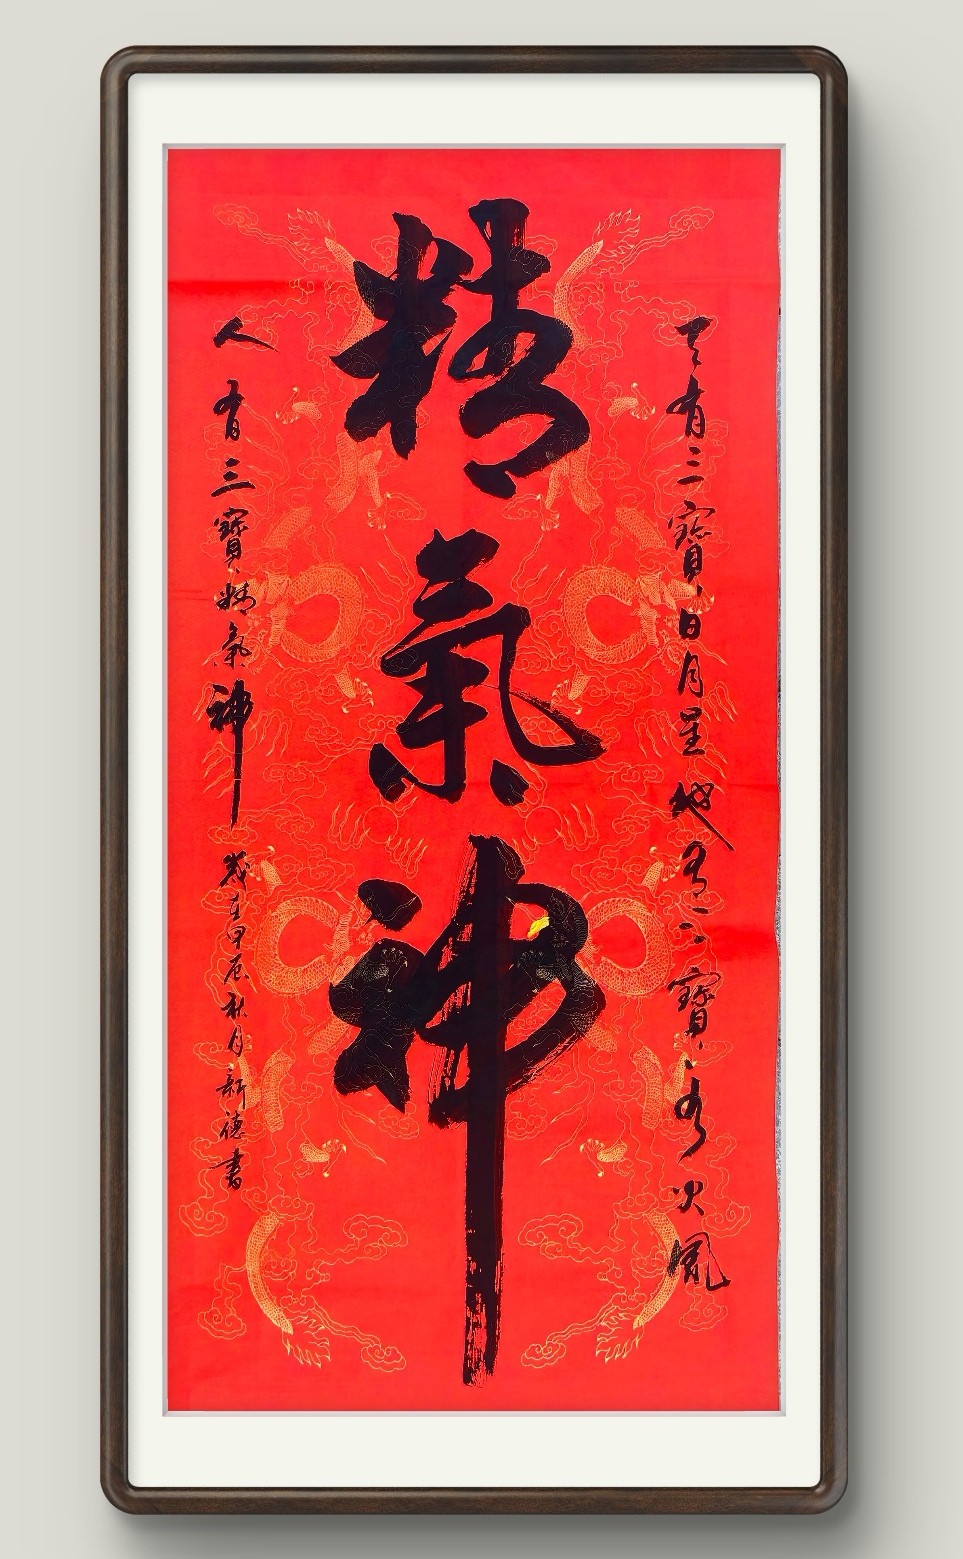 天有三寶日月星地有三寶水火風
精氣神
人有三寶精氣神
歲在甲辰秋月新德書